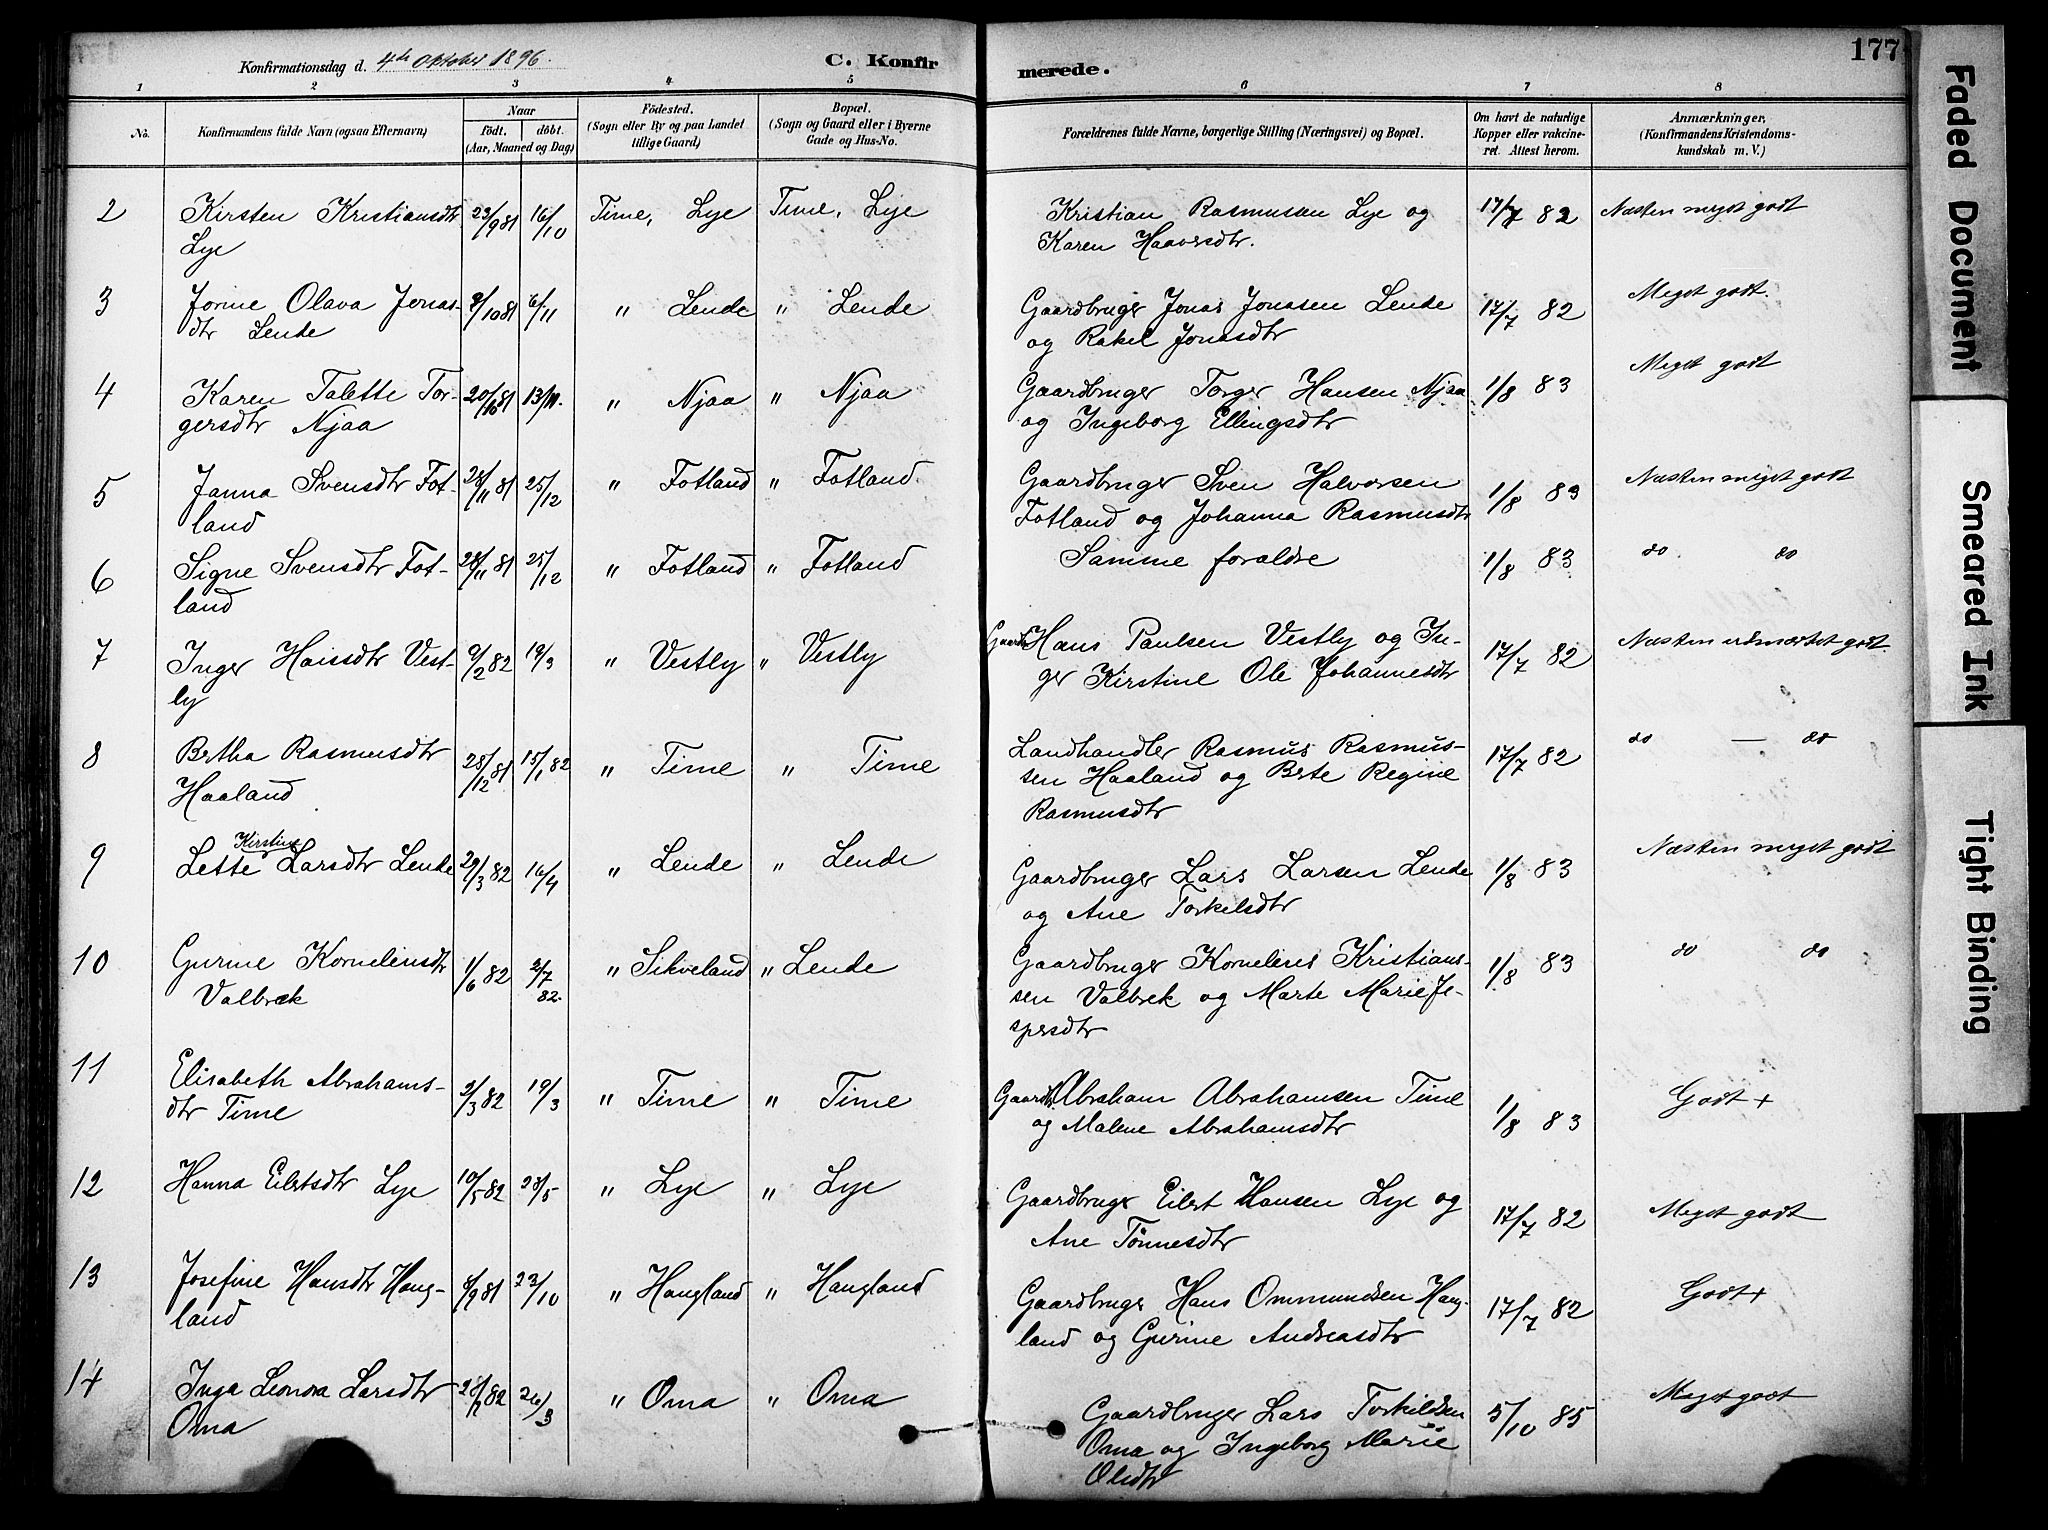 177
Konfirmationsdag d. 4de Oktober 1896.
C. Konfirmerede.
1 2 3 4 5 6 7 8
No.
Konfirmandens fulde Navn (ogsaa Efternavn)
Naar
födt. döbt.
(Aar, Maaned og Dag)
Födested.
(Sogn eller By og paa Landet
tillige Gaard)
Bopæl.
(Sogn og Gaard eller i Byerne
Gade og Hus-No.
Forældrenes fulde Navne, borgerlige Stilling (Næringsvei) og Bopæl.
Om havt de naturlige
Kopper eller vakcine-
ret. Attest herom.
Anmærkninger,
(Konfirmandens Kristendoms-
kundskab m. V.)
2 Kirsten Kristiansdtr 23/9 81 16/10 Time, Lye Time, Lye Kristian Rasmusen Lye og 17/7 82 Næsten meget godt
Lye Karen Haaversdtr.
3 Jorine Olava Jonas- 9/10 81 6/11 " Lende " Lende Gaardbruger Jonas Jonasen Lende 17/7 82 Meget godt.
dtr Lende og Rakel Jonasdtr
4 Karen Talette Tor- 20/10 81 13/11. " Njaa " Njaa Gaardbruger Torger Hansen Njaa 1/8 83 Meget godt
gersdtr Njaa og Ingeborg Ellingsdtr
5 Janna Svensdtr Fot- 28/11 81 25/12 " Fotland " Fotland. Gaardbruger Sven Halvorsen 1/8 83 Næsten meget godt
land Fotland og Johanna Rasmusdtr
6 Signe Svensdtr Fot- 28/11 81 25/12 " Fotland " Fotland Samme foraldre 1/8 83 do. do
land
7 Inger Hansdtr Vest- 9/2 82 19/3 " Vestly " Vestly Gaardb Hans Paulsen Vestly og In- 17/7 82 Næsten udmærket godt
ly ger Kirstine Ole Johannesdtr
8 Bertha Rasmusdtr 28/12 81 15/1 82 " Time " Time Landhandler Rasmus Rasmus- 17/7 82 do — do
Haaland sen Haaland og Berte Regine
Rasmusdtr
9 Lette Kirstine Larsdtr Lende 29/3 82 16/4 " Lende " Lende Gaardbruger Lars Larsen Lende 1/8 83 Næsten meget godt
og Ane Torkelsdtr
10 Gurine Korneliusdtr 1/6 82 2/7 82. " Sikveland " Lende Gaardbruger Kornelius Kristian- 1/8 83 do do
Valbræk sen Valbrek og Marte Marie Je-
spersdtr
11 Elisabeth Abrahams- 2/3 82 19/3 " Time " Time Gaardb. Abraham Abrahamsen Time 1/8 83 Godt +
dtr Time og Malene Abrahamsdtr
12 Hanna Eilertsdtr Lye 10/5 82 28/5 " Lye " Lye Gaardbruger Eilert Hansen Lye og 17/7 82 Meget godt
Ane Tönnesdtr
13 Josefine Hansdtr Haug- 81 23/10 " Haugland " Haugland Gaardbruger Hans Ommundsen Haug- 17/7 82 Godt +
land land og Gurine Andreasdtr
14 Inga Leonora Larsdtr 82 26/3 " Oma " Oma Gaardbruger Lars Torkildsen 5/10 85 Meget godt
Oma Oma og Ingeborg Marie
Olsdtr
Faded Document
Smeared Ink
Tight Binding